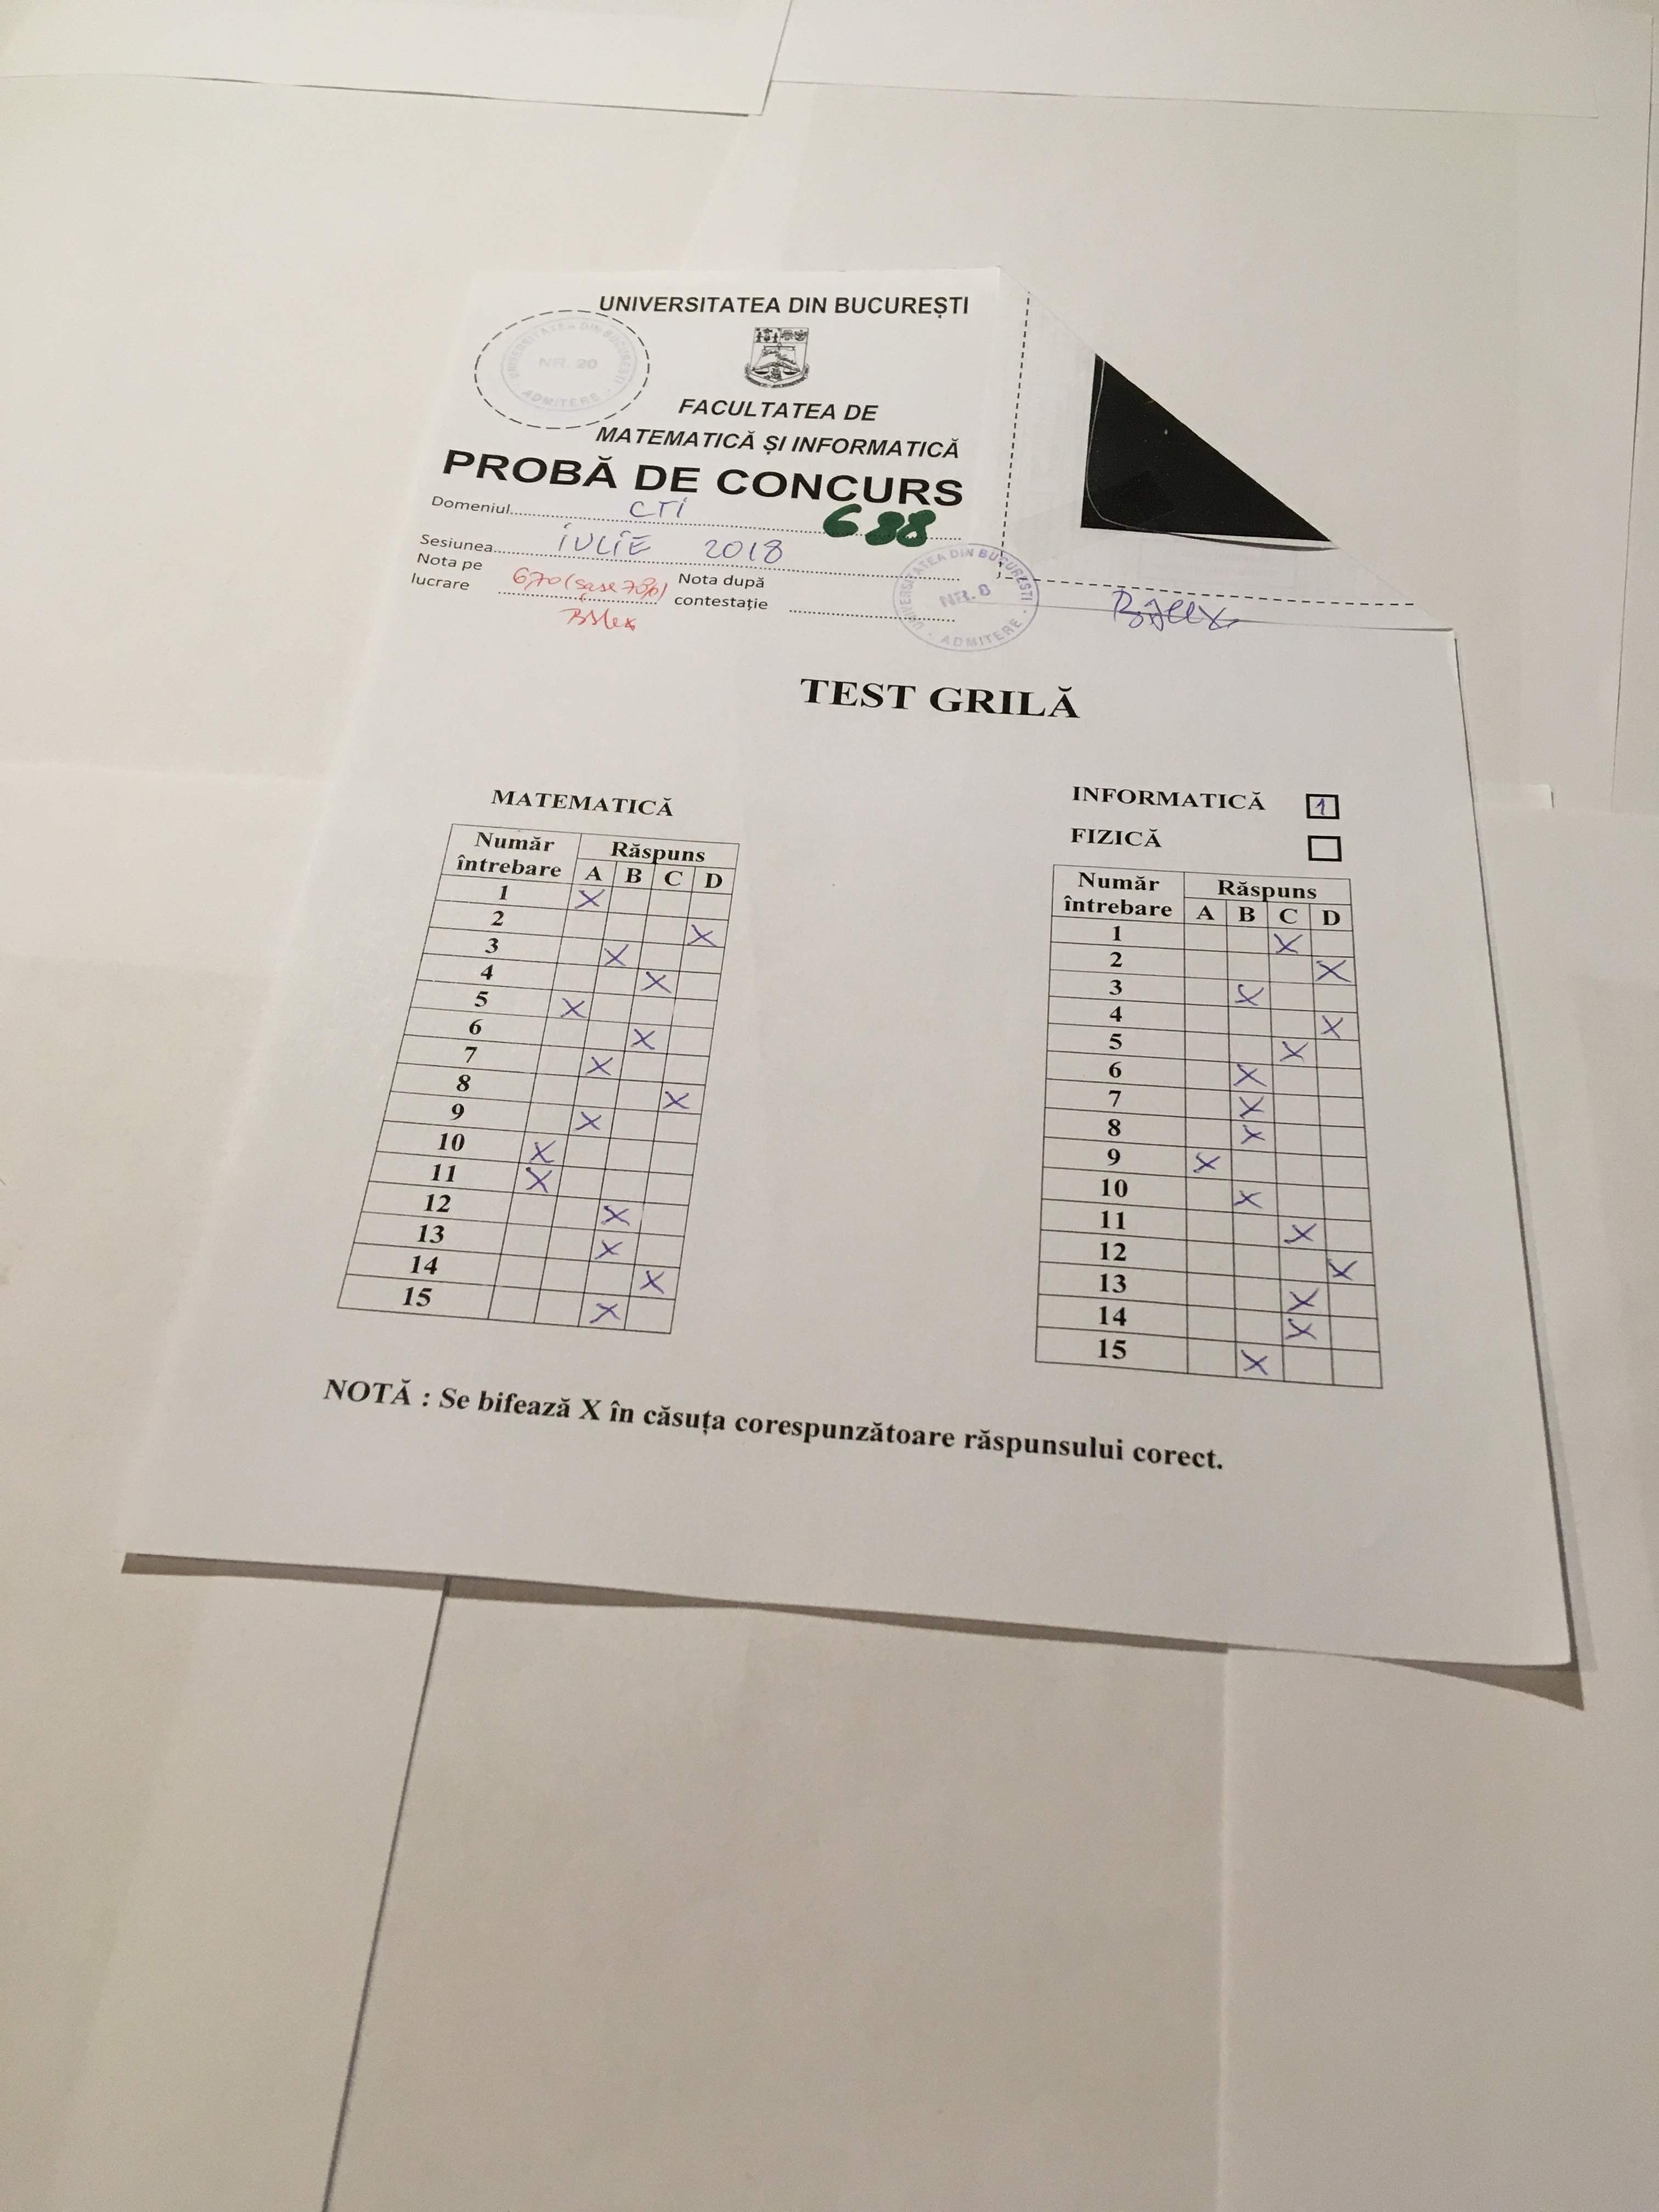 UNIVERSITATEA DIN BUCUREȘTI
UNIVERSITATEA DIN BUCUREȘTI
NR. 20
ADMITERE
FACULTATEA DE
MATEMATICĂ ȘI INFORMATICĂ
PROBĂ DE CONCURS
Domeniul CTI 638
Sesiunea IULIE 2018
Nota pe lucrare 670 (șase 70%) Nota după contestație
UNIVERSITATEA DIN BUCUREȘTI
NR. 8
ADMITERE
TEST GRILĂ
MATEMATICĂ
Număr întrebare Răspuns
A B C D
1 X
2 X
3 X
4 X
5 X
6 X
7 X
8 X
9 X
10 X
11 X
12 X
13 X
14 X
15 X
INFORMATICĂ 1
FIZICĂ
Număr întrebare Răspuns
A B C D
1 X
2 X
3 X
4 X
5 X
6 X
7 X
8 X
9 X
10 X
11 X
12 X
13 X
14 X
15 X
NOTĂ : Se bifează X în căsuța corespunzătoare răspunsului corect.